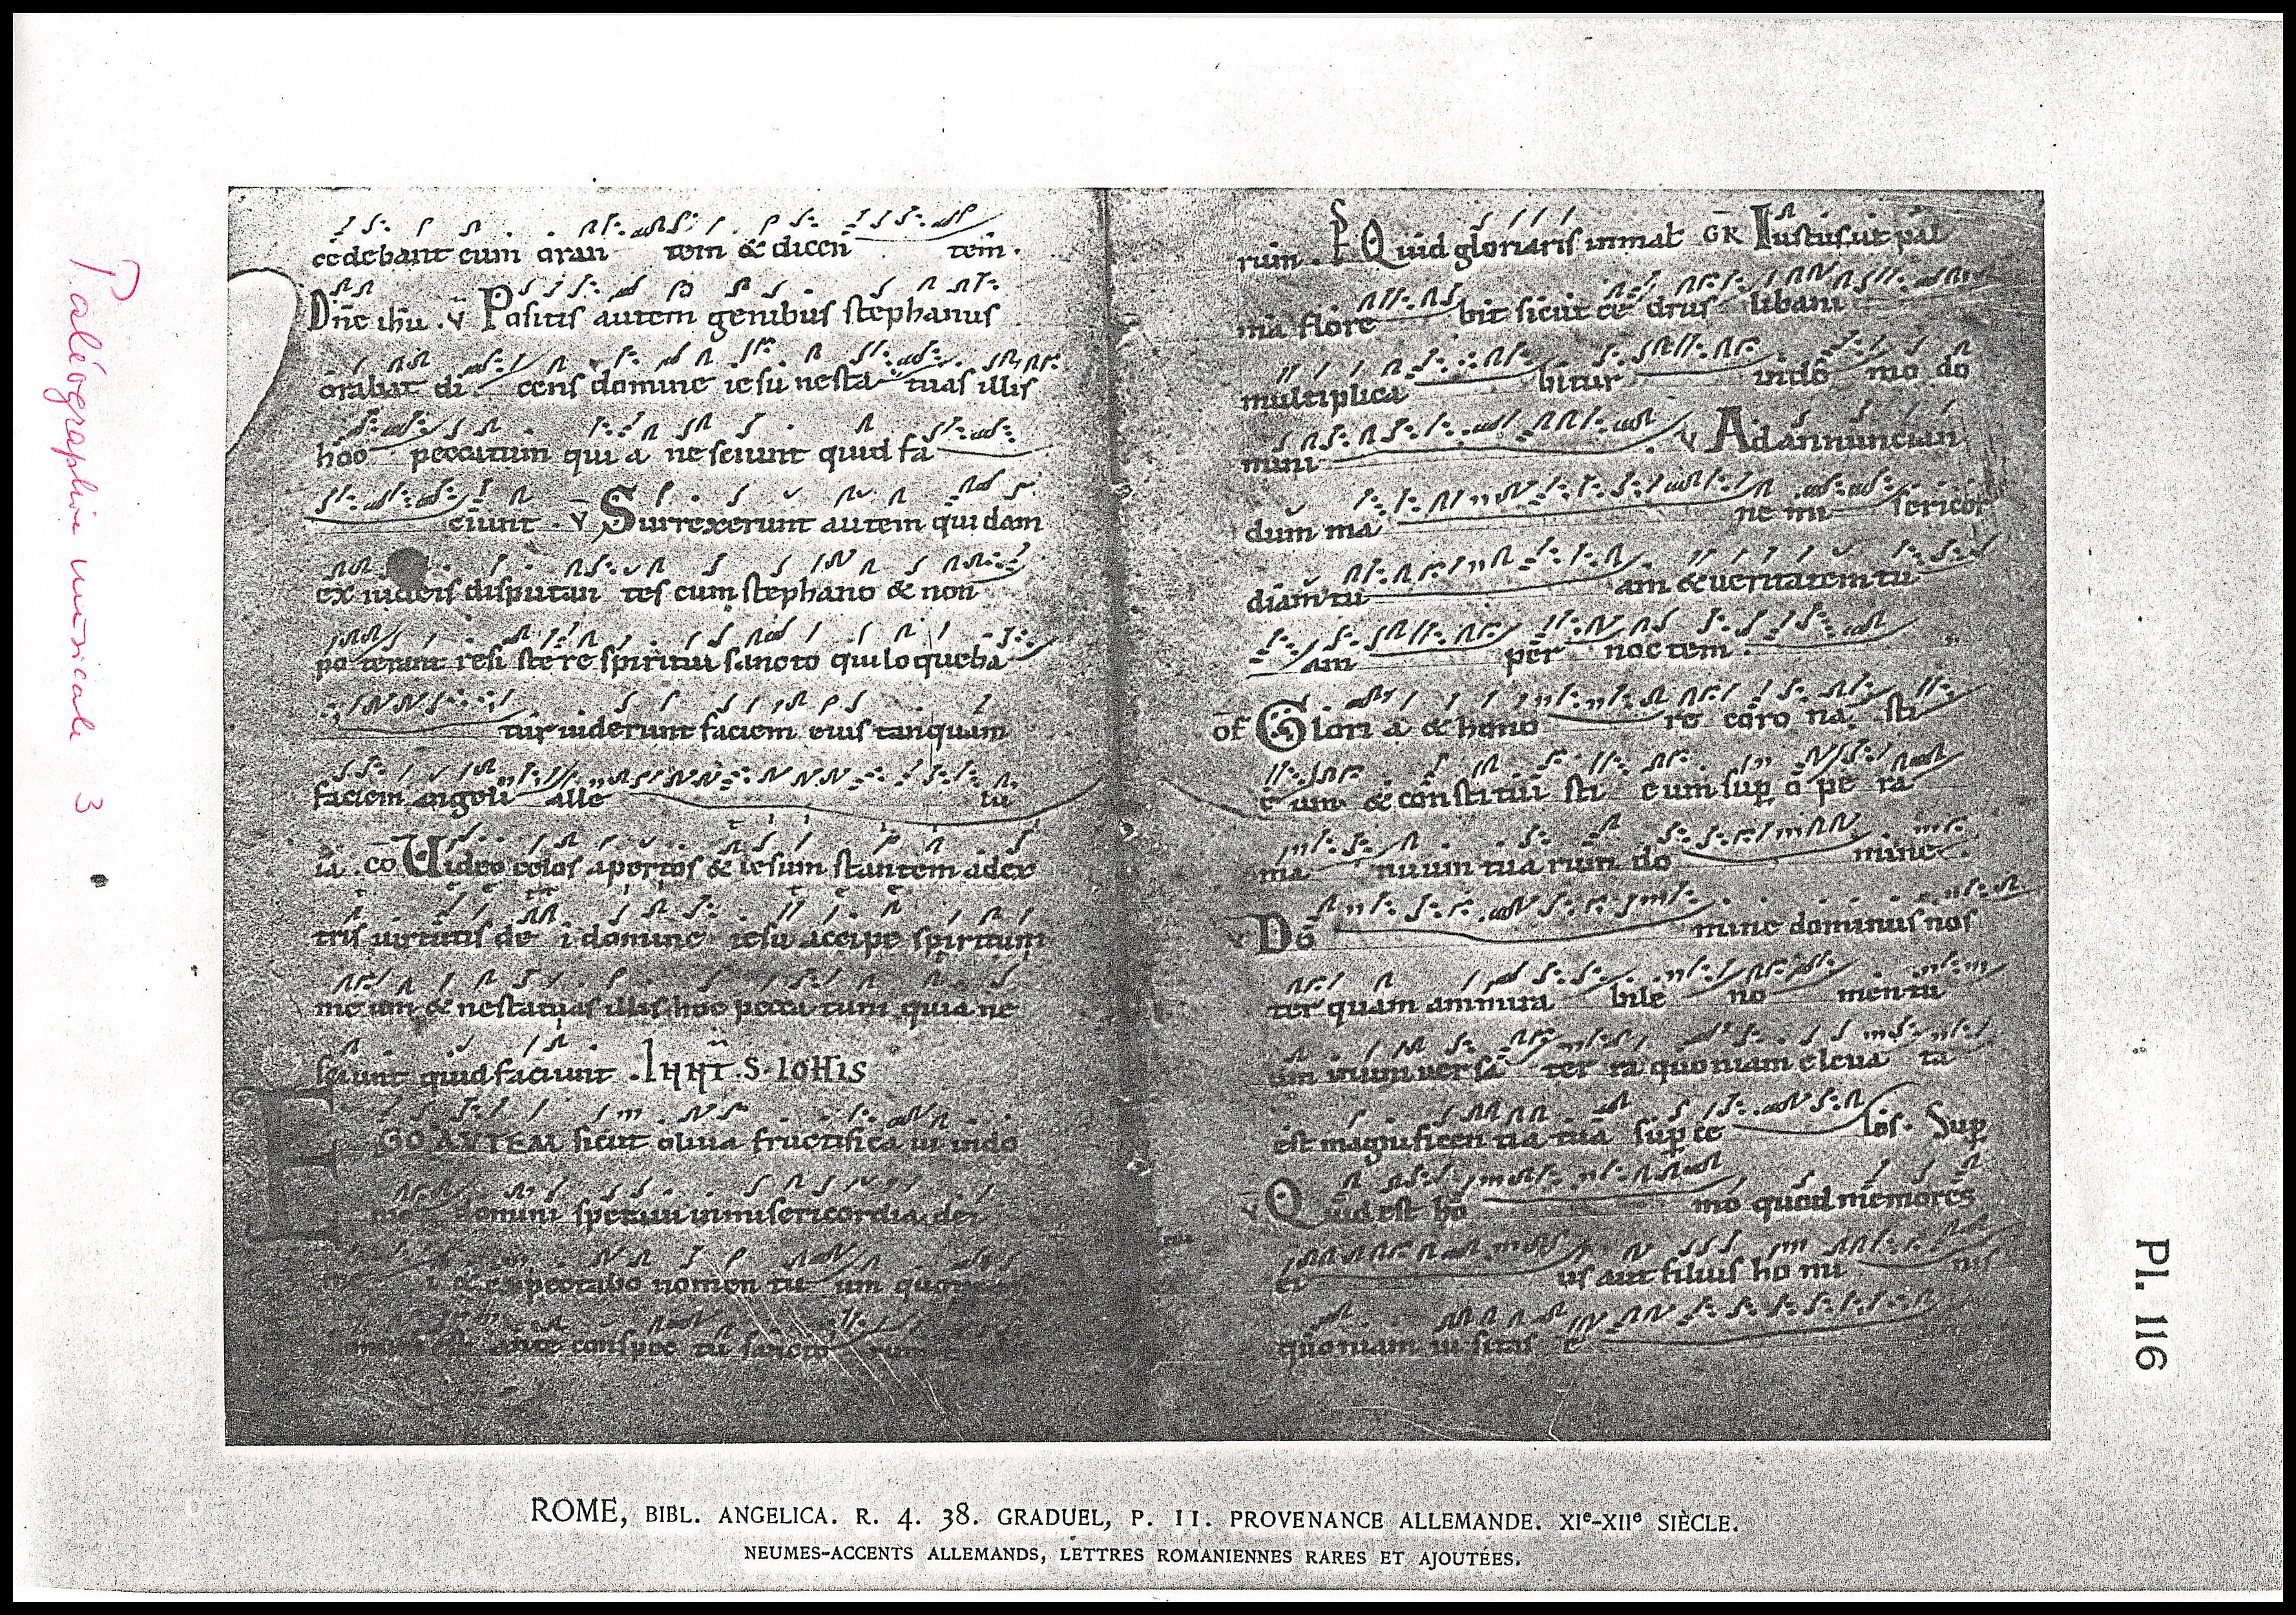 Paléographie musicale 3
cedebant eum oran tem & dicen tem.
Dne ihu . v Positis autem genibus stephanus
orabat di cens domine iesu ne sta tuas illis
hoc peccatum qui a nesciunt quid fa
ciunt . v Surrexerunt autem quidam
ex iudeis disputan tes cum stephano & non
poterant resi stere spiritui sancto qui loqueba
tur uiderunt faciem eius tanquam
faciem angeli alle lu
ia . co Uideo celos apertos & iesum stantem adex
tris uirtutis de i domine iesu accipe spiritum
meum & ne statuas illis hoc pecca tum quia ne
sciunt quid faciunt . S. IOHIS
EGO AVTEM sicut oliua fructifica ui indo
domini speraui in misericordia dei
i & expectabo nomen tu um quoni
ante conspec tu sancto
rum . Quid gloriaris in mal GR Iustus ut pal
ma flore bit sicut ce drus libani
multiplica bitur indo mo do
mini . v Ad annuncian
dum ma ne mi sericor
diam tu am & ueritatem tu
am per noctem
of Glori a & hono re coro na sti
e um & constitui sti eum sup o pe ra
ma nuum tua rum do mine .
v Do mine dominus nos
ter quam ammira bile no men tu
um in uniuersa ter ra quoniam eleua ta
est magnificen tia tua sup ce los . Sup
v Quid est ho mo quod memores
ei us aut filius ho mi nis
quoniam ui sitas e
Pl. 116
ROME, BIBL. ANGELICA. R. 4. 38. GRADUEL, P. 11. PROVENANCE ALLEMANDE. XIe-XIIe SIÈCLE.
NEUMES-ACCENTS ALLEMANDS, LETTRES ROMANIENNES RARES ET AJOUTÉES.